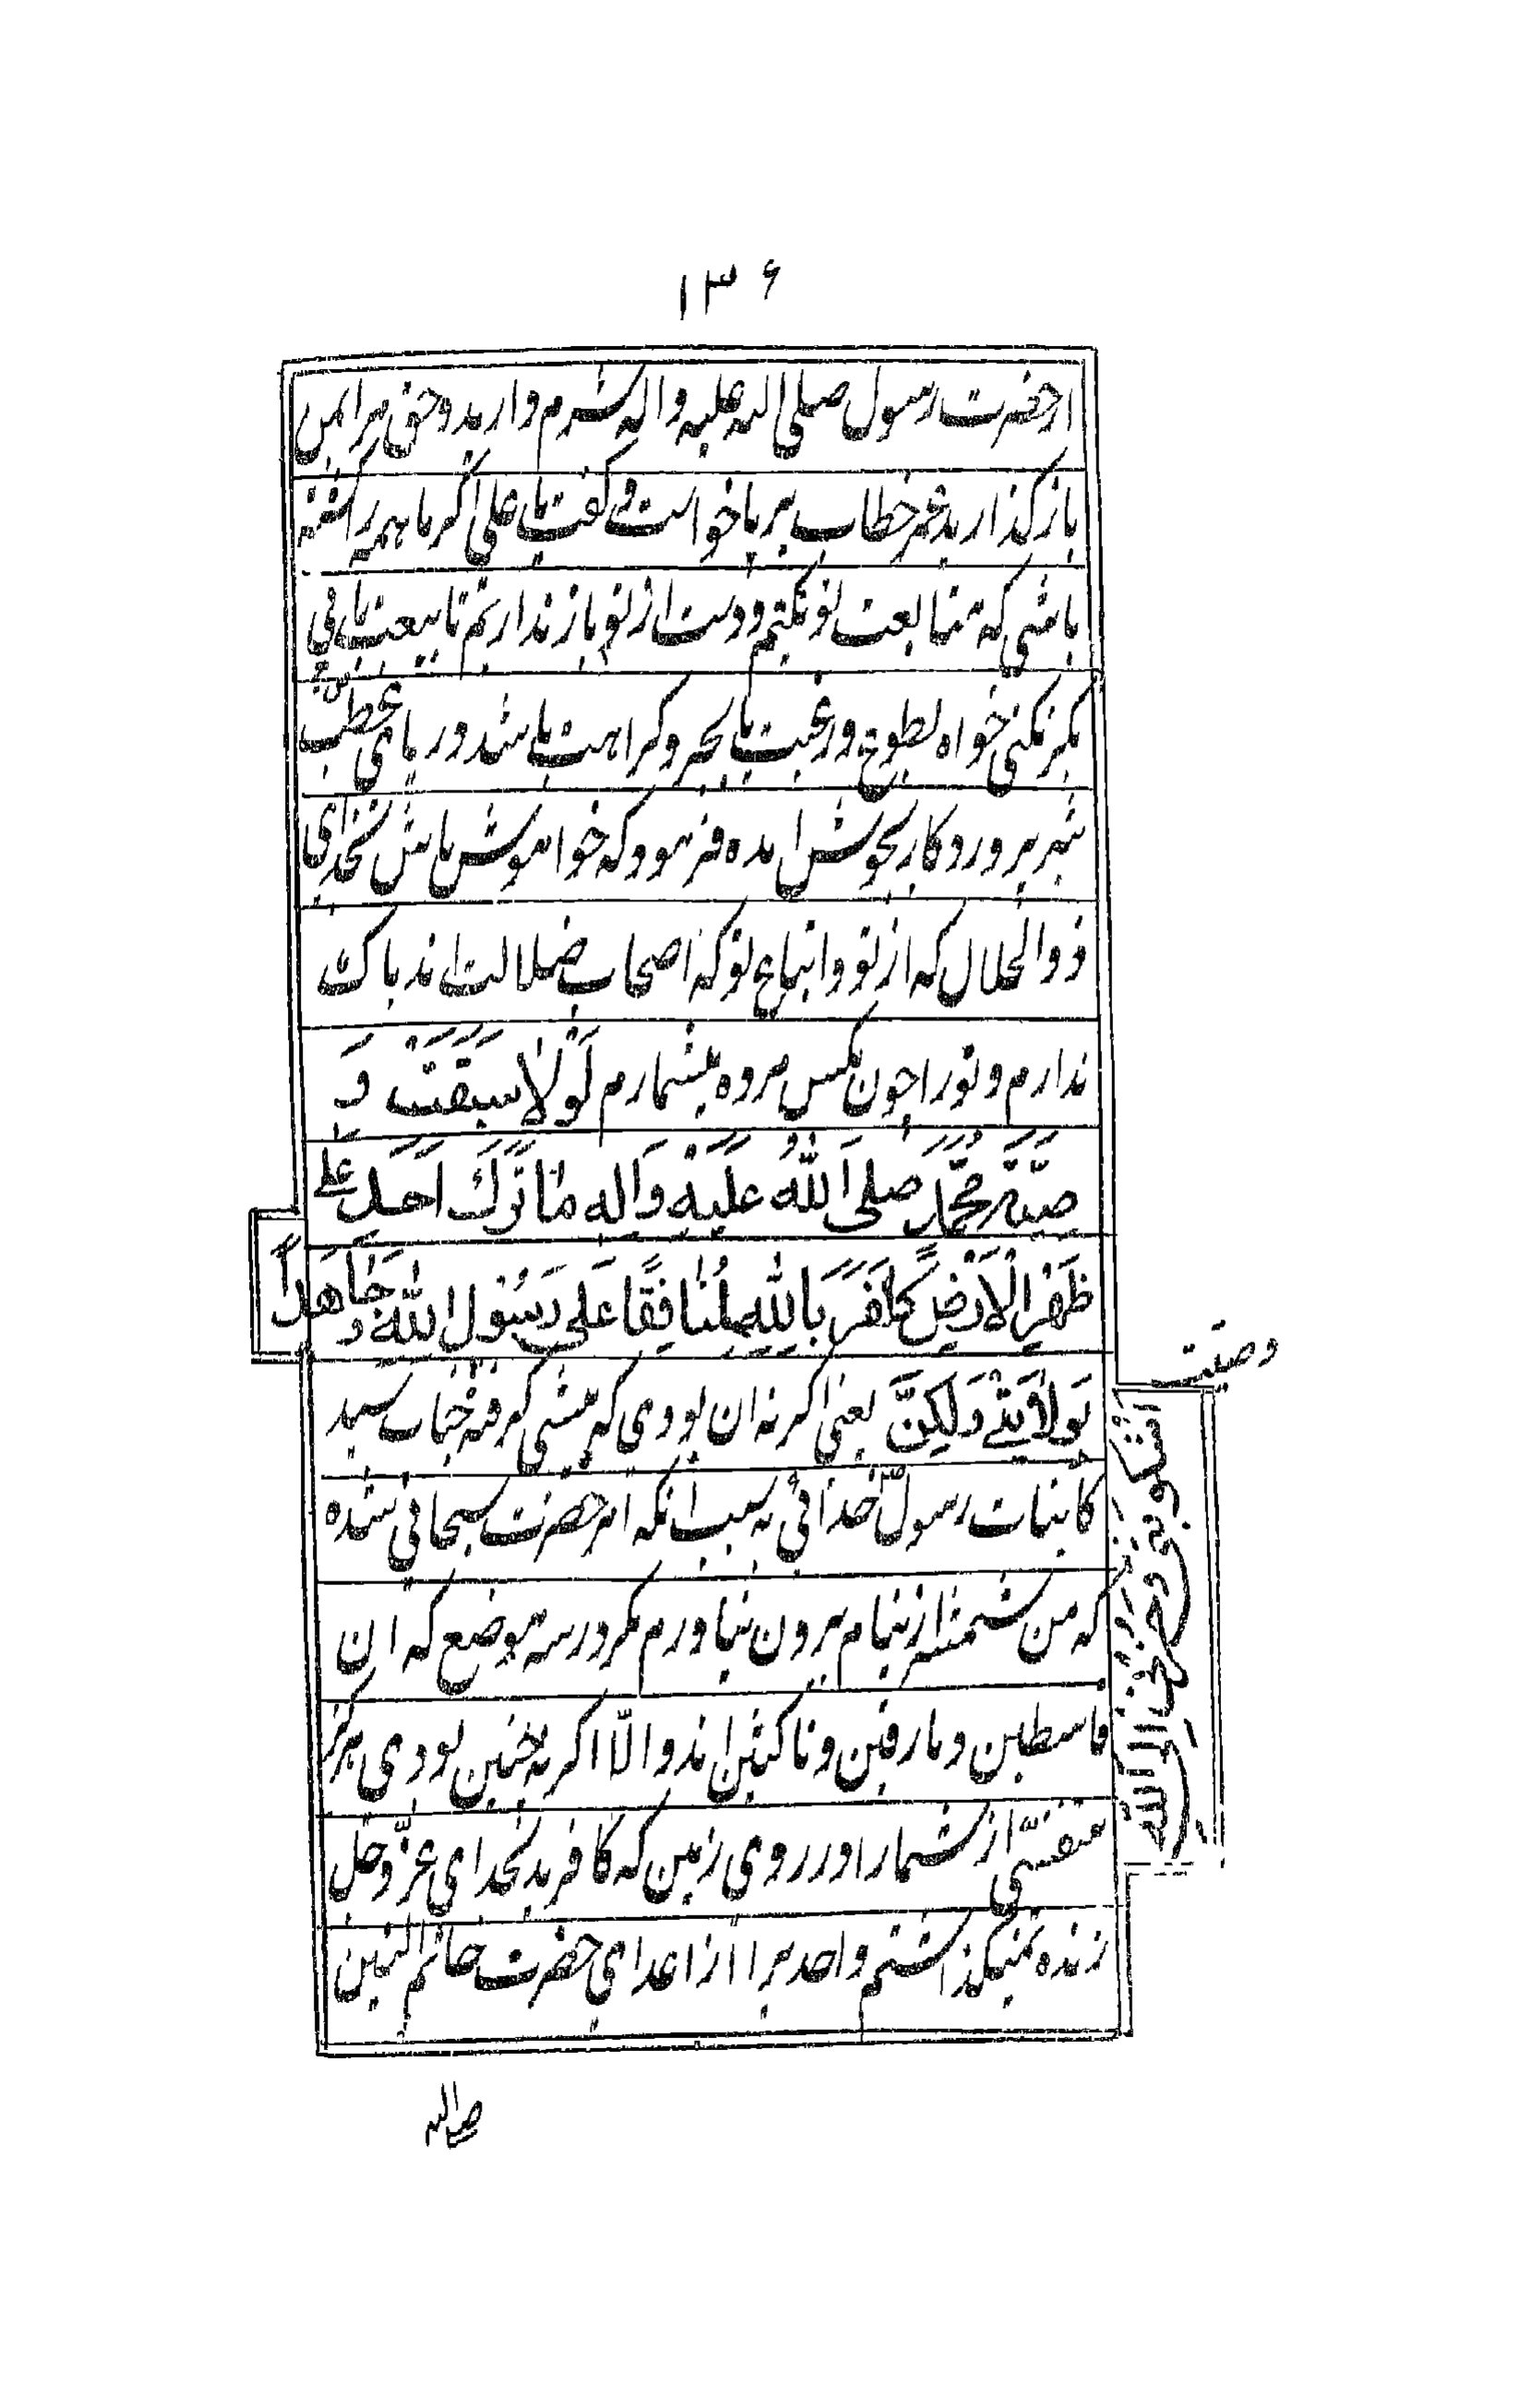 ۱۳۶
از حضرت رسول صلی الله علیه و اله شرم دارید و حق مرا بمن
باز گذارید عمر خطاب بر پا خواست و گفت یا علی اگر ما همه را کشته
باشی که متابعت تو نکنیم و دست از تو باز نداریم تا بیعت بابی
بکر نکنی خواه بطوع و رغبت یا بجبر و کراهت باشد دریای غضب
شیر پروردگار بجوش امده فرمود که خواموش باش بخدای
ذوالجلال که از تو و اتباع تو که اصحاب ضلالت اند باک
ندارم و تو را چون مکس مرده میشمارم لَوْلَا سَبَقَتْ وَ
صِیَّةُ مُحَمَّدٍ صَلَّی اللهُ عَلَیْهِ وَآلِهِ مَا تَرَکَ اَحَدٌ عَلی
ظَهْرِ الْاَرْضِ کَفَرَ بِاللهِ مُنَافِقًا عَلَی رَسُولِ اللهِ وَ جَاهِدًا
بِوِلَایَتِی وَلَکِنَّ یعنی اگر نه ان بودی که پیشی گرفته جناب سید
کاینات رسول خدائی به سبب انکه امر حضرت سبحانی شده
که من شمشیر از نیام بیرون نیاورم مگر در سه موضع که ان
قاسطین و مارقین و ناکثین اند و الّا اگر نه چنین بودی هرگز
متنفسی از شما را در روی زمین که کافرید بخدای عزّ و جل
زنده نمیگذاشتم و احدیرا از اعدای حضرت خاتم النبین
وصیت
صلی الله